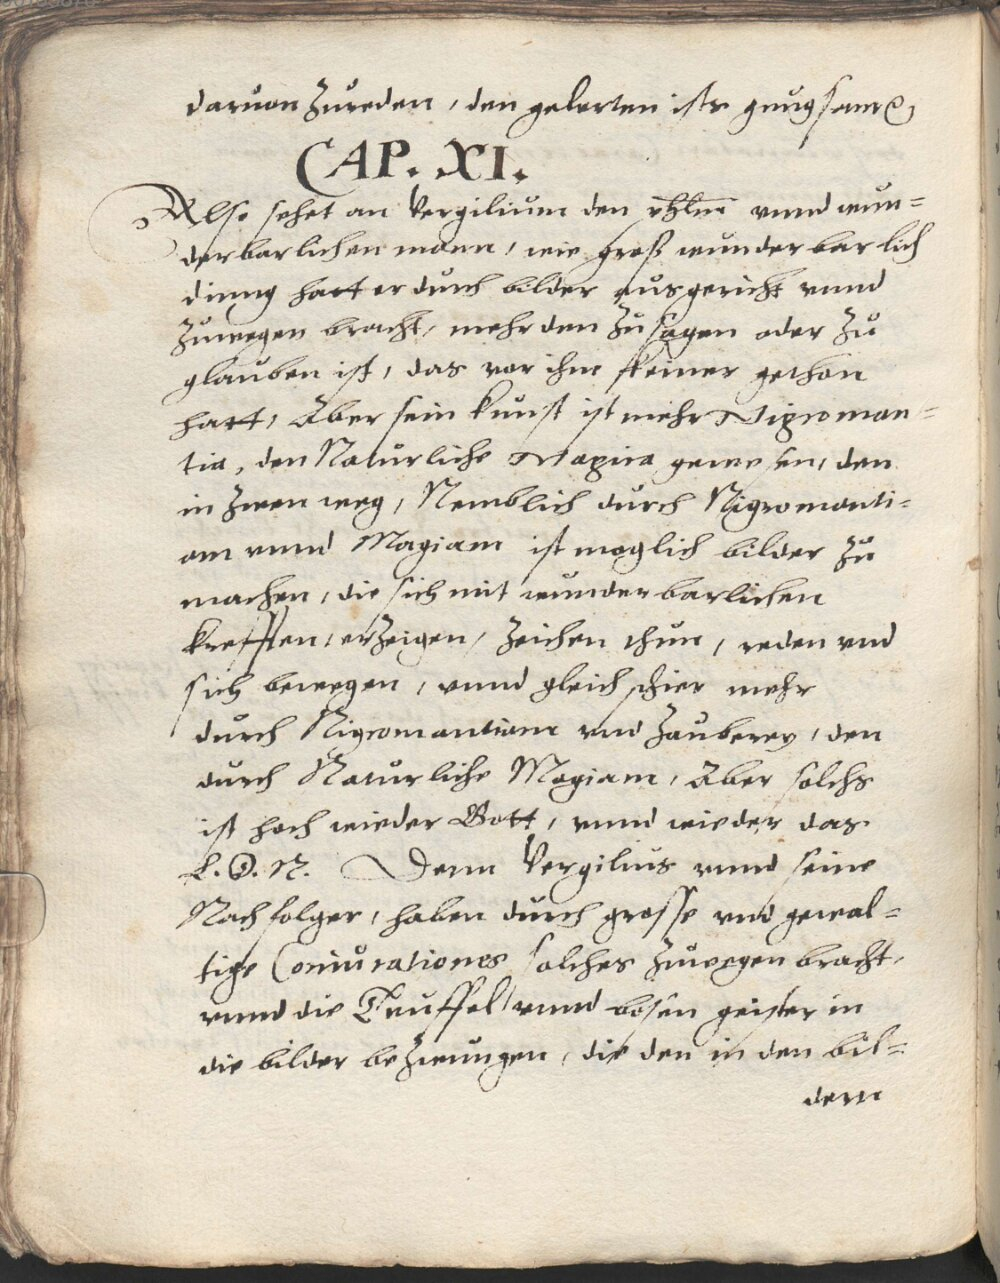 daruon zureden, den gelerten ists gnugsam
CAP. XI.
Also sehet an Vergilium den vhlm vnnd wun=
derbarlichen mann, wie groß wunderbarlich
dinng hatt er durch bilder ausgericht vnnd
zuwegen bracht, mehr den zu sagen oder zu
glauben ist, das vor ihm keiner gethon
hatt, Aber sein kunst ist mehr Nigroman=
tia, den Naturliche Magica gewesen, den
in zween weg, Nemblich durch Nigromanti=
am vnnd Magiam ist moglich bilder zu
machen, die sich mit wunderbarlichen
krefften, erzeigen, zeichen thun, reden vnd
sich bewegen, vnnd gleich schier mehr
durch Nigromantiam vnd Zauberey, den
durch Naturliche Magiam, Aber solchs
ist hoch wieder Gott, vnnd wieder das
L. O. N. Denn Vergilius vnnd seine
Nachfolger, haben durch grosse vnd gewal=
tige Coniurationes solches zuwegen bracht,
vnnd die Teuffel vnnd bosen geister in
die bilder bezwungen, die den in den bil=
dern